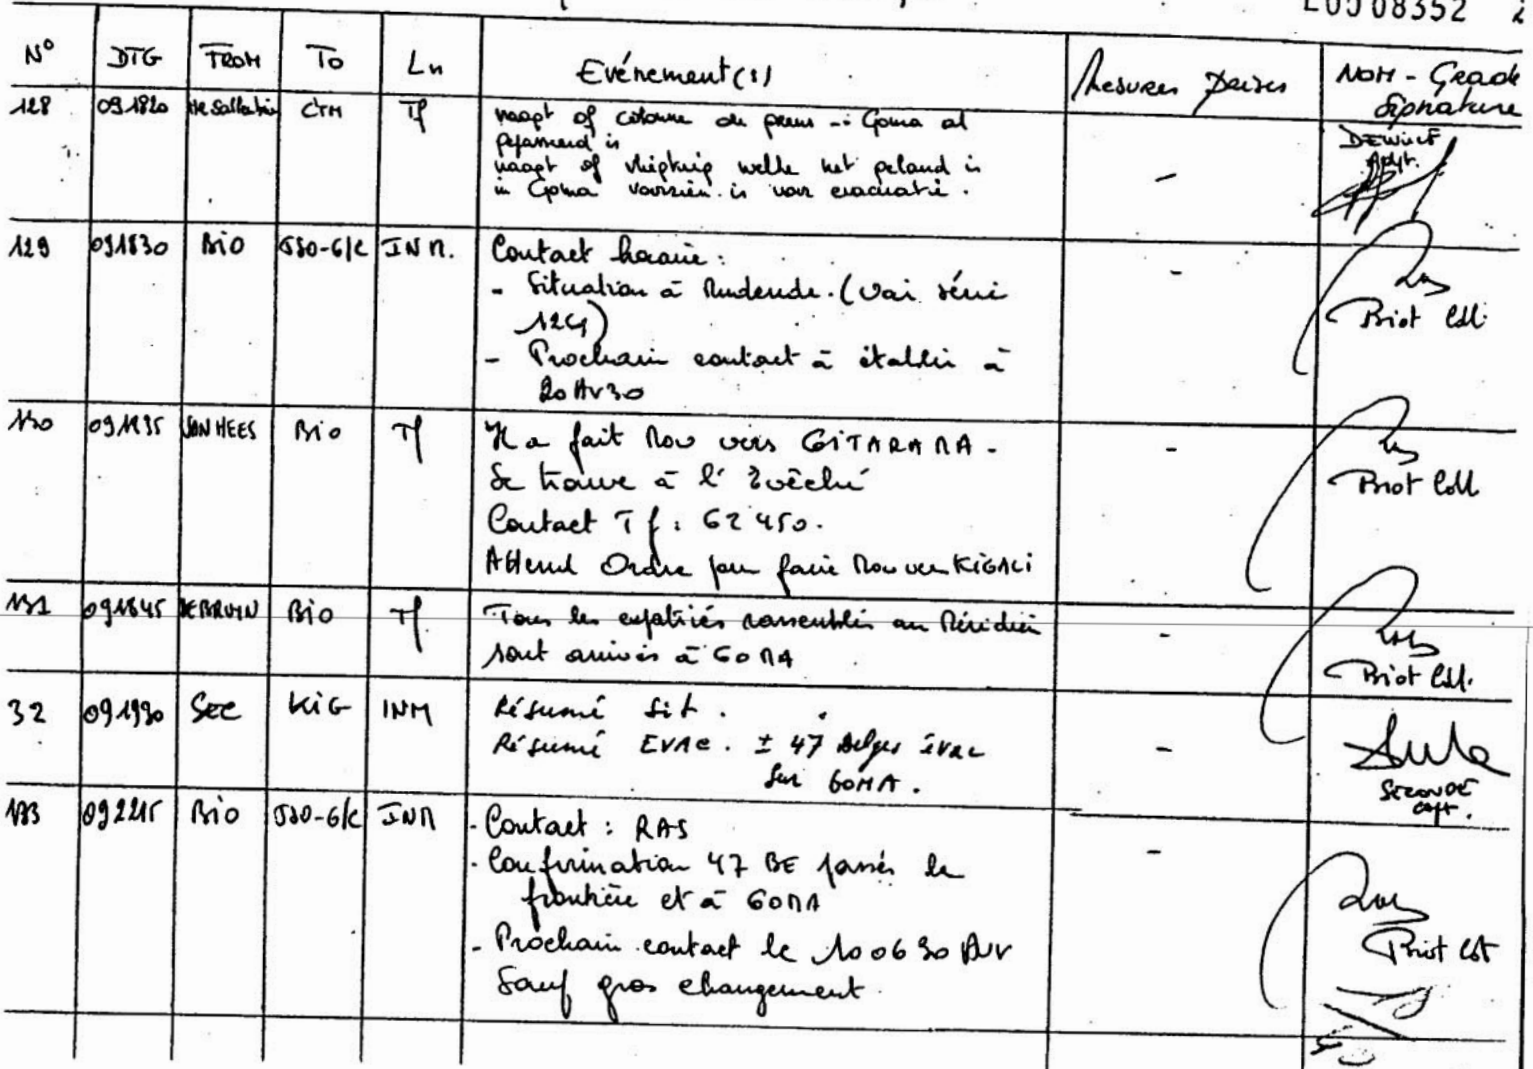 L0008352
N° DTG FROM To Ln Evénement(s) Mesures prises NOM - Grade
Signature
128 091820 CTM Tf vraagt of colonne Goma al
gepasseerd is
vraagt of vliegtuig welke net geland is
in Goma voorzien is voor evacuatie.
-
DEWULF
Adjt.
129 091830 Bio JSO-G/C INM. Contact horaire:
- Situation à Mudende. (Voir série
124)
- Prochain contact à établir à
20 Hr 30
-
Briot Cdt.
130 VAN HEES Bio Tf Il a fait Mov vers GITARAMA -
Se trouve à l'Evêché
Contact Tf : 62 450.
Attend Ordre pour faire Mov vers KIGALI
-
Briot Cdt
131 091845 DEBRUYN Bio Tf Tous les expatriés rassemblés au Méridien
sont arrivés à GOMA
-
Briot Cdt.
32 091930 SEC KIG INM Résumé sit.
Résumé EVAC. ± 47 Belges évac
sur GOMA.
-
SECONDE
Capt.
133 092215 Bio JSO-G/C INM - Contact : RAS
- Confirmation 47 BE passés la
frontière et à GOMA
- Prochain contact le 100630 Avr
Sauf gros changement.
-
Briot Cdt